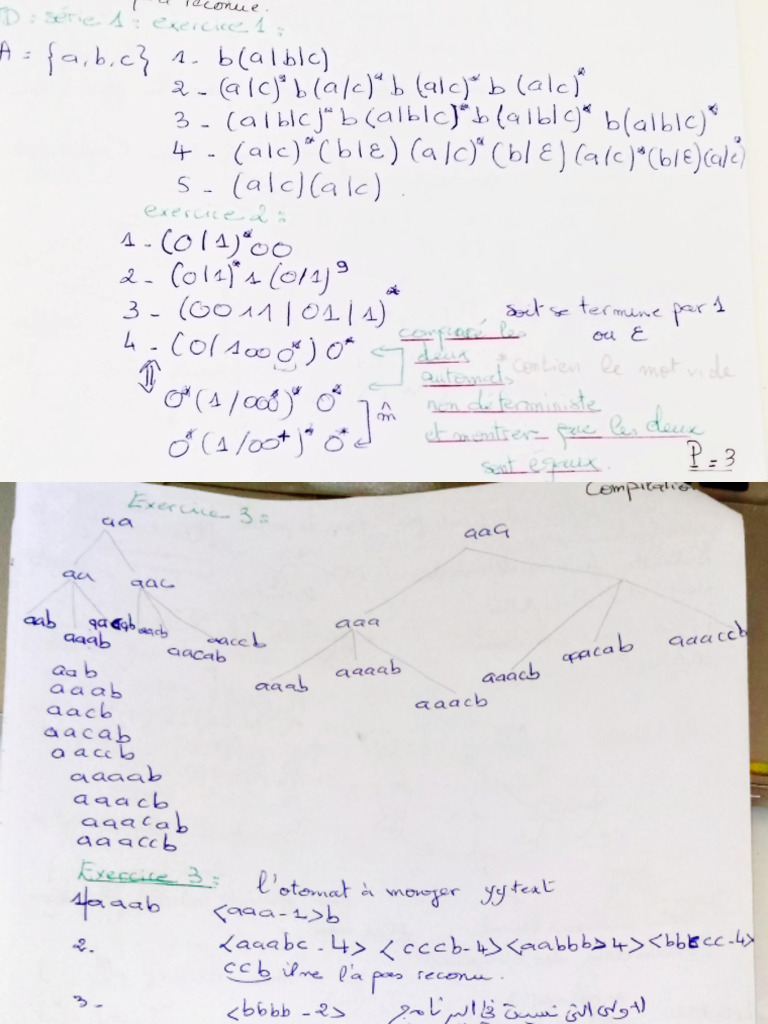 TD : série 1 : exercice 1 :
A = {a,b,c} 1 - b(a|b|c)
2 - (a|c)* b (a/c)* b (a|c)* b (a|c)*
3 - (a|b|c)* b (a|b|c)* b (a|b|c)* b(a|b|c)*
4 - (a|c)* (b|ε) (a/c)* (b|ε) (a/c)* (b|ε)(a/c)*
5 - (a|c)(a|c)
exercice 2 :
1 - (0/1)*00
2 - (0|1)* 1 (0/1)⁹
3 - (0011|01|1)* soit se termine par 1
ou ε
4 - (0/100 0*) 0* comparé les
deux
contien le mot vide
automats
0*(1/000*)* 0* non déterministe
0*(1/00+)* 0* et montrer que les deux
sont égaux. P = 3
Compilation
Exercice 3 :
aa aaa
aa aac
aab aaab aacb aacab aaccb
aaa
aaab aaaab aaacb
aaacb aaacab aaaccb
aab
aaab
aacb
aacab
aaccb
aaaab
aaacb
aaacab
aaaccb
Exercice 3 : l'otomat à manger yytext
1 aaab <aaa-1>b
2. <aaabc-4> <cccb-4><aabbb-4><bbbcc-4>
ccb il ne l'a pas reconu.
3 - <bbbb-2>